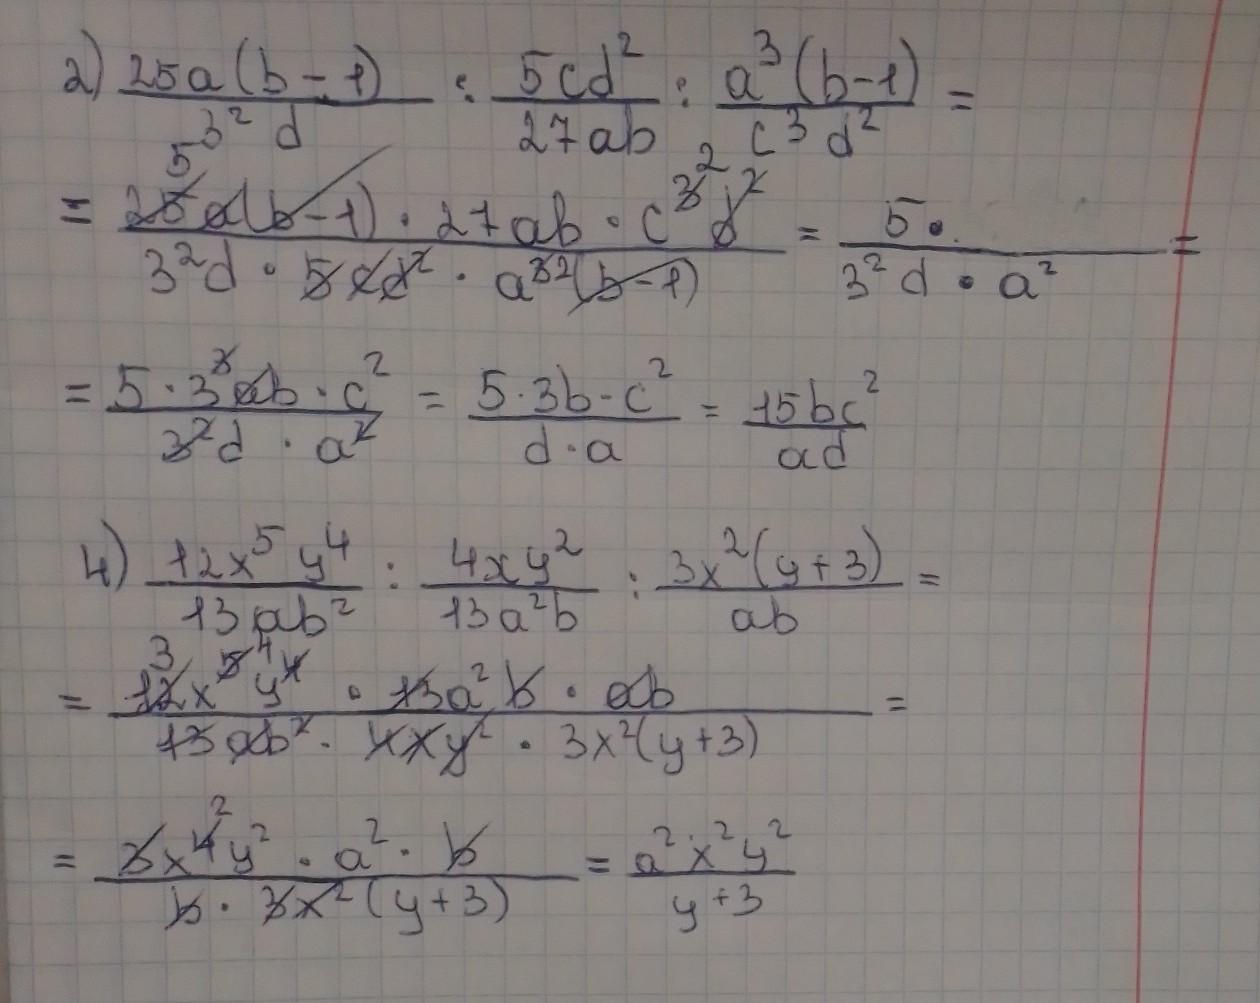 2) 25a(b-1)/3²d : 5cd²/27ab : a³(b-1)/c³d² =
= 25a(b-1) · 27ab · c³d²/3²d · 5cd² · a³²(b-1) = 5·/3²d · a² =
= 5 · 3³ab · c²/3²d · a² = 5·3b·c²/d·a = 15bc²/ad
4) 12x⁵y⁴/13ab² : 4xy²/13a²b : 3x²(y+3)/ab =
= 12x⁵y⁴ · 13a²b · ab/13ab² · 4xy² · 3x²(y+3) =
= 3x⁴y² · a² · b/b · 3x²(y+3) = a²x²y²/y+3